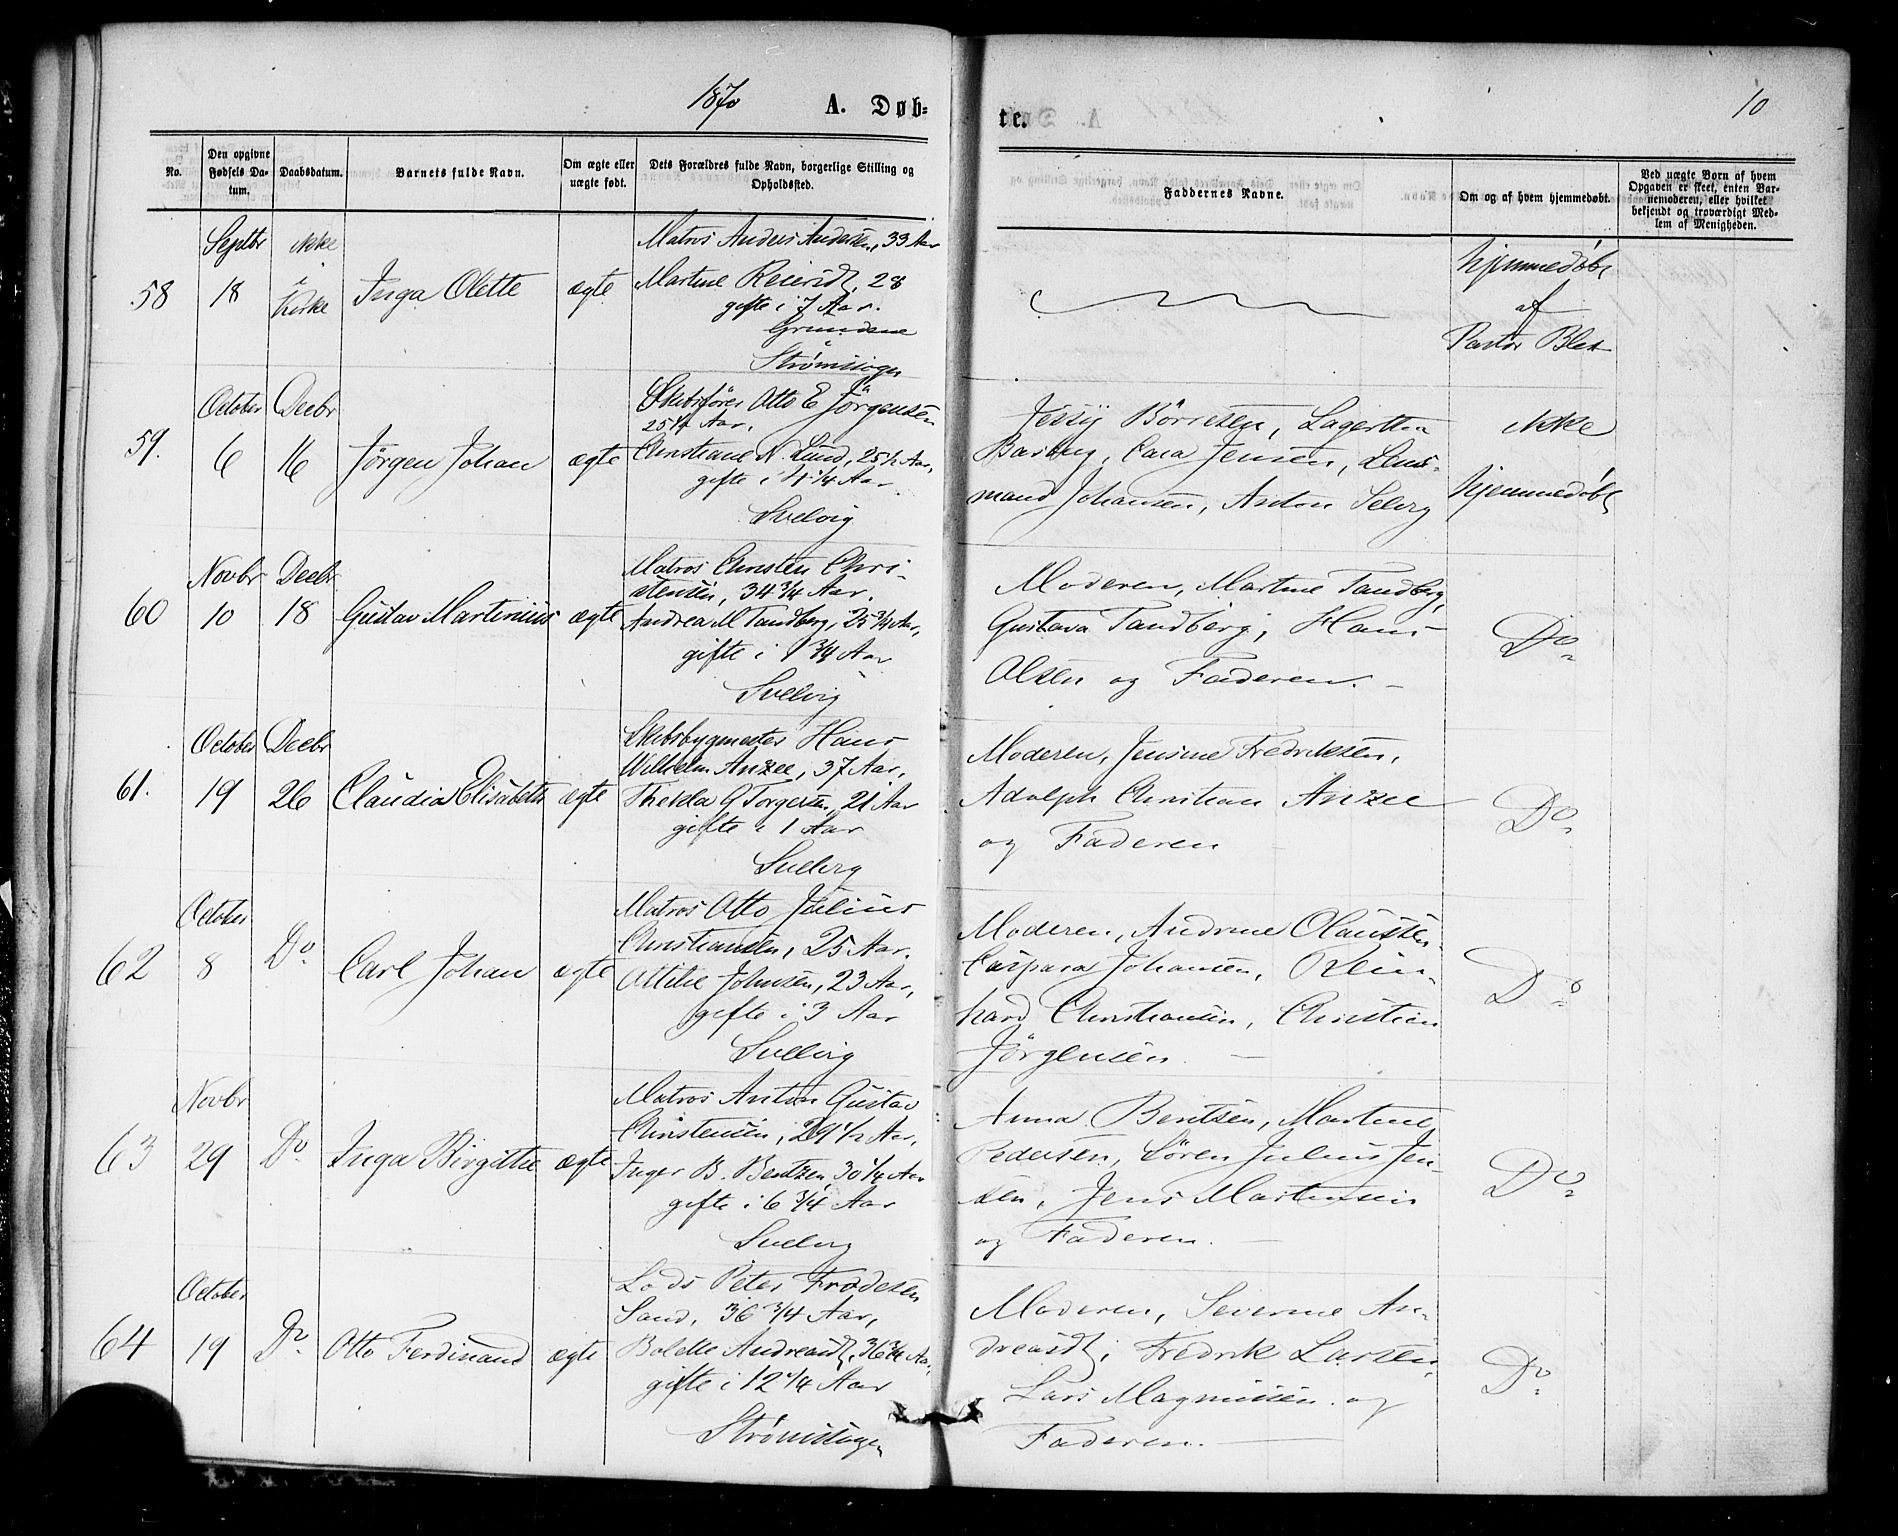 1870
A. Døb-
te.
10
No.
Den opgivne
Fødsels Da-
tum.
Daabsdatum.
Barnets fulde Navn.
Om ægte eller
uægte født.
Dets Forældres fulde Navn, borgerlige Stilling og
Opholdssted.
Faddernes Navne.
Om og af hvem hjemmedøbt.
Ved uægte Børn af hvem
Opgaven er skeet, enten Bar-
nemoderen, eller hvilket
bekjendt og troværdigt Med-
lem af Menigheden.
58
Septbr
18
ikke
i
Kirke
Inga Olette
ægte
Matros Anders Andersen, 33 Aar
Martine Reiersdt, 28
gifte i 7 Aar.
i
Strømsogn
hjemmedøbt
af
Pastor
59.
October
6
Decbr
16
Jørgen Johan
ægte
Skibsfører Otto E Jörgensen
25 1/4 Aar,
Christiane N. Lund, 25 1/2 Aar,
gifte i 1 1/4 Aar
Svelvig
Jessy Börresen, Lagertha
Cara Jensen, Lens-
mand Johansen, Anton Selvig
ikke
hjemmedøbt
60
Novbr
10
Decbr
18
Gustav Martinius
ægte
Matros Christen Chri-
stensen, 34 3/4 Aar.
Andrea M Tandberg, 25 3/4 Aar,
gifte i 1 3/4 Aar
Svelvig
Moderen, Martine Tandberg,
Gustava Tandberg, Hans
Olsen og Faderen. -
Do
61.
October
19
Decbr
26
Claudia Elisabeth
ægte
Skibsbygmester Hans
Wilhelm Anzee, 37 Aar,
Thekla G Torgersen, 21 Aar
gifte i 1 Aar
Svelvig
Moderen, Jensine Fredriksen,
Adolph Christian Anzee
og Faderen
Do
62
October
8
Do
Carl Johan
ægte
Matros Otto Julius
Christiansen, 25 Aar.
Attilie Johnsen, 23 Aar,
gifte i 3 Aar
Svelvig
Moderen, Andrine Olaussen,
Caspara Johansen,
hard Christiansen, Christian
Jørgensen. -
Do
63
Novbr
29
Do
Inga Birgitte
ægte
Matros Anton Gustav
Christensen, 29 1/2 Aar,
Inger B. Bentzen, 30 1/4 Aar
gifte i 6 3/4 Aar
Svelvig
Anna Bentsen, Martine
Pedersen, Sören Julius Jen-
sen, Jens Martinsen
og Faderen. -
Do
64
October
19
Do
Otto Ferdinand
ægte
Lods Peter Frodesen
Sand, 36 3/4 Aar,
Bolette Andreasdt, 36 3/4 Aar,
gifte i 12 1/4 Aar
Strømsogn
Moderen, Severine An-
dreasdt, Fredrik Larsen,
Lars Magnussen og
Faderen.
Do